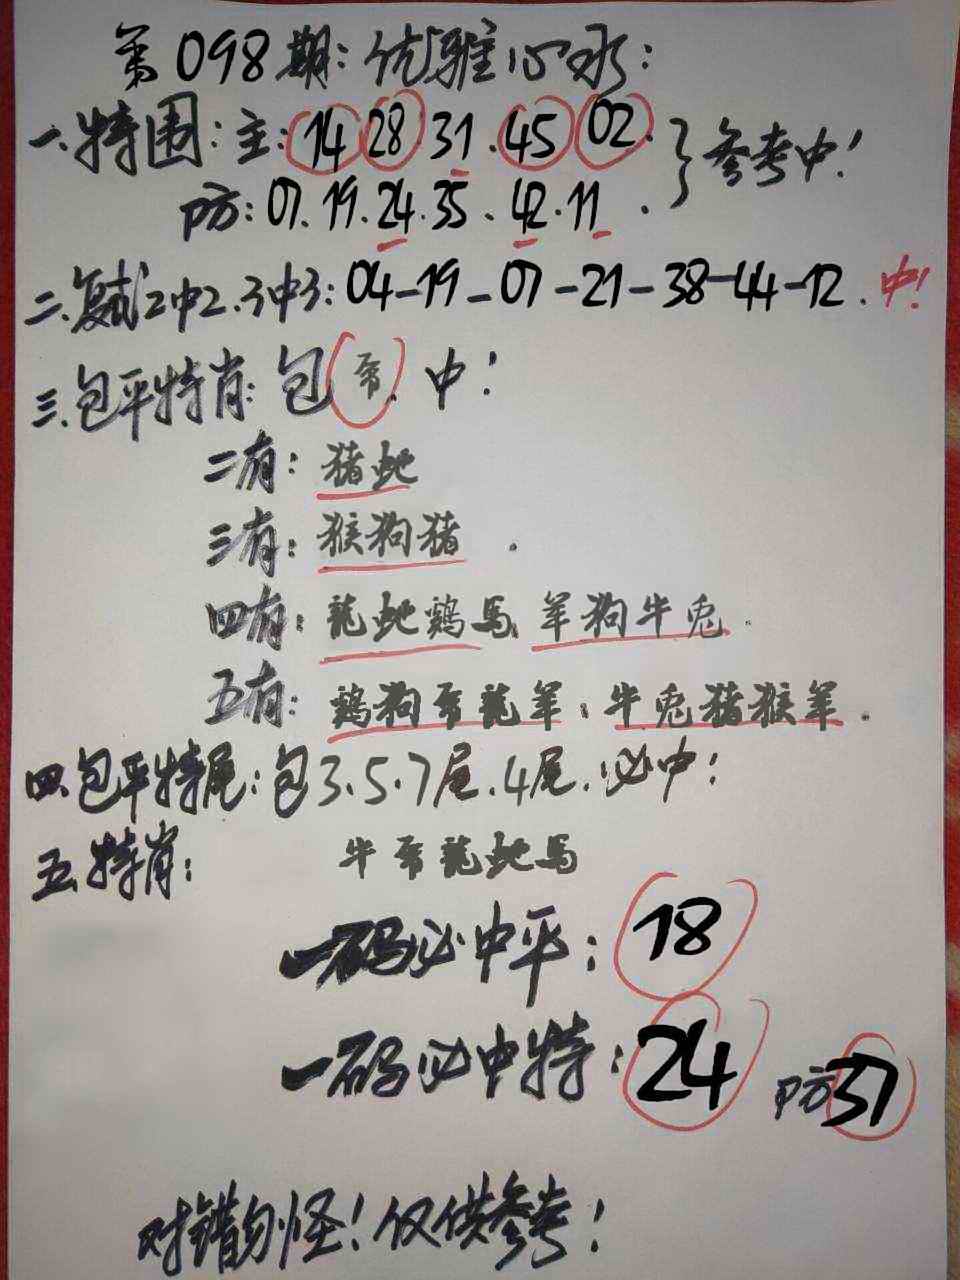 第098期:优雅心水:
一.特围:主:14 28.31.45 02.
参考中!
防:07.19.24.35.42.11.
二.复试2中2.3中3:04-19-07-21-38-44-12.中!
三.包平特肖:包 .中!
二有:猪蛇
三有:猴狗猪.
四有:龍蛇鷄馬.羊狗牛兎.
五有:鷄狗 龍羊.牛兎猪猴羊.
四.包平特尾:包3.5.7尾.4尾.必中!
五.特肖: 牛 龍蛇馬
一码必中平:18
一码必中特:24 防37
对错勿怪!仅供参考!